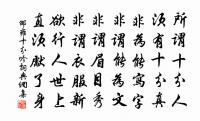 所謂十分人
須有十分真
非為能寫字
非謂能為文
非謂眉目秀
非謂衣服新
欲行人世上
直須獻了身
邵雍十分吟詞典網集